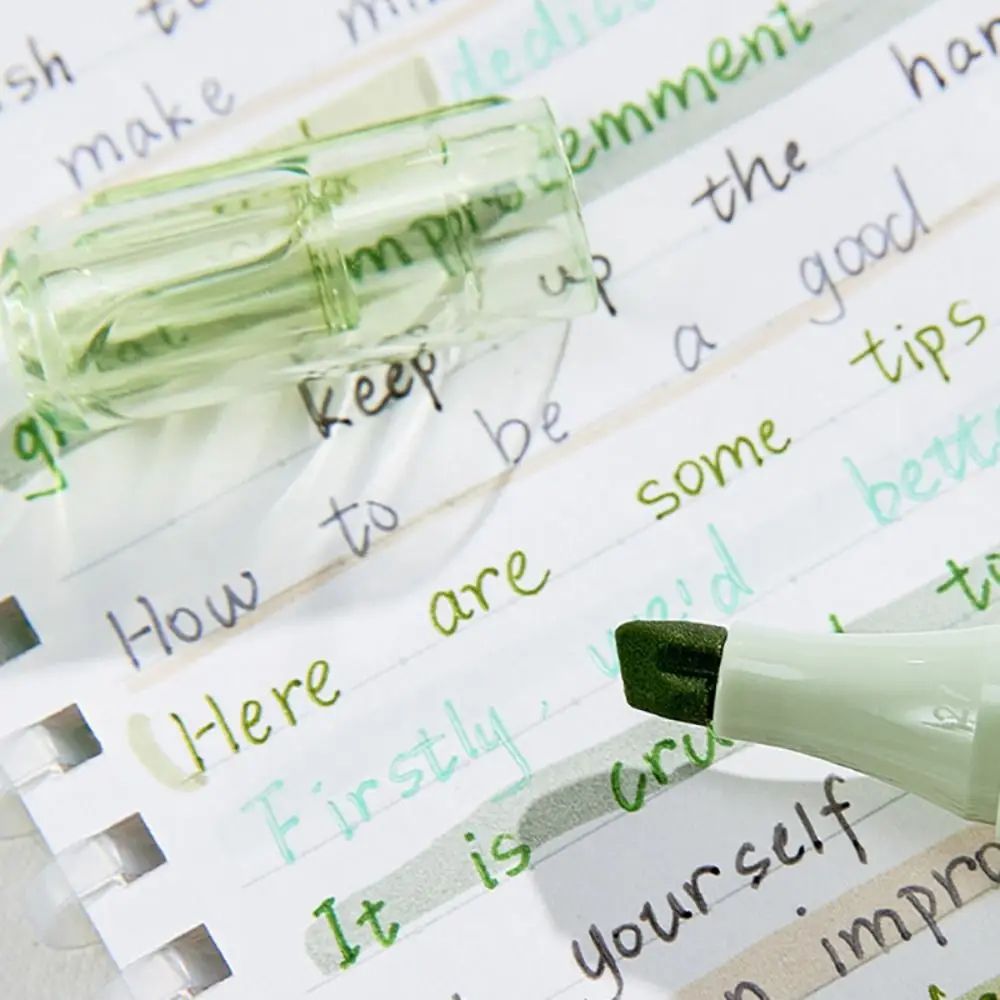 sh to
make
dedic
g improvemment
keep up the har
How to be a good
Here are some tips
Firstly, we'd bett
It is cru ti
yourself
impro